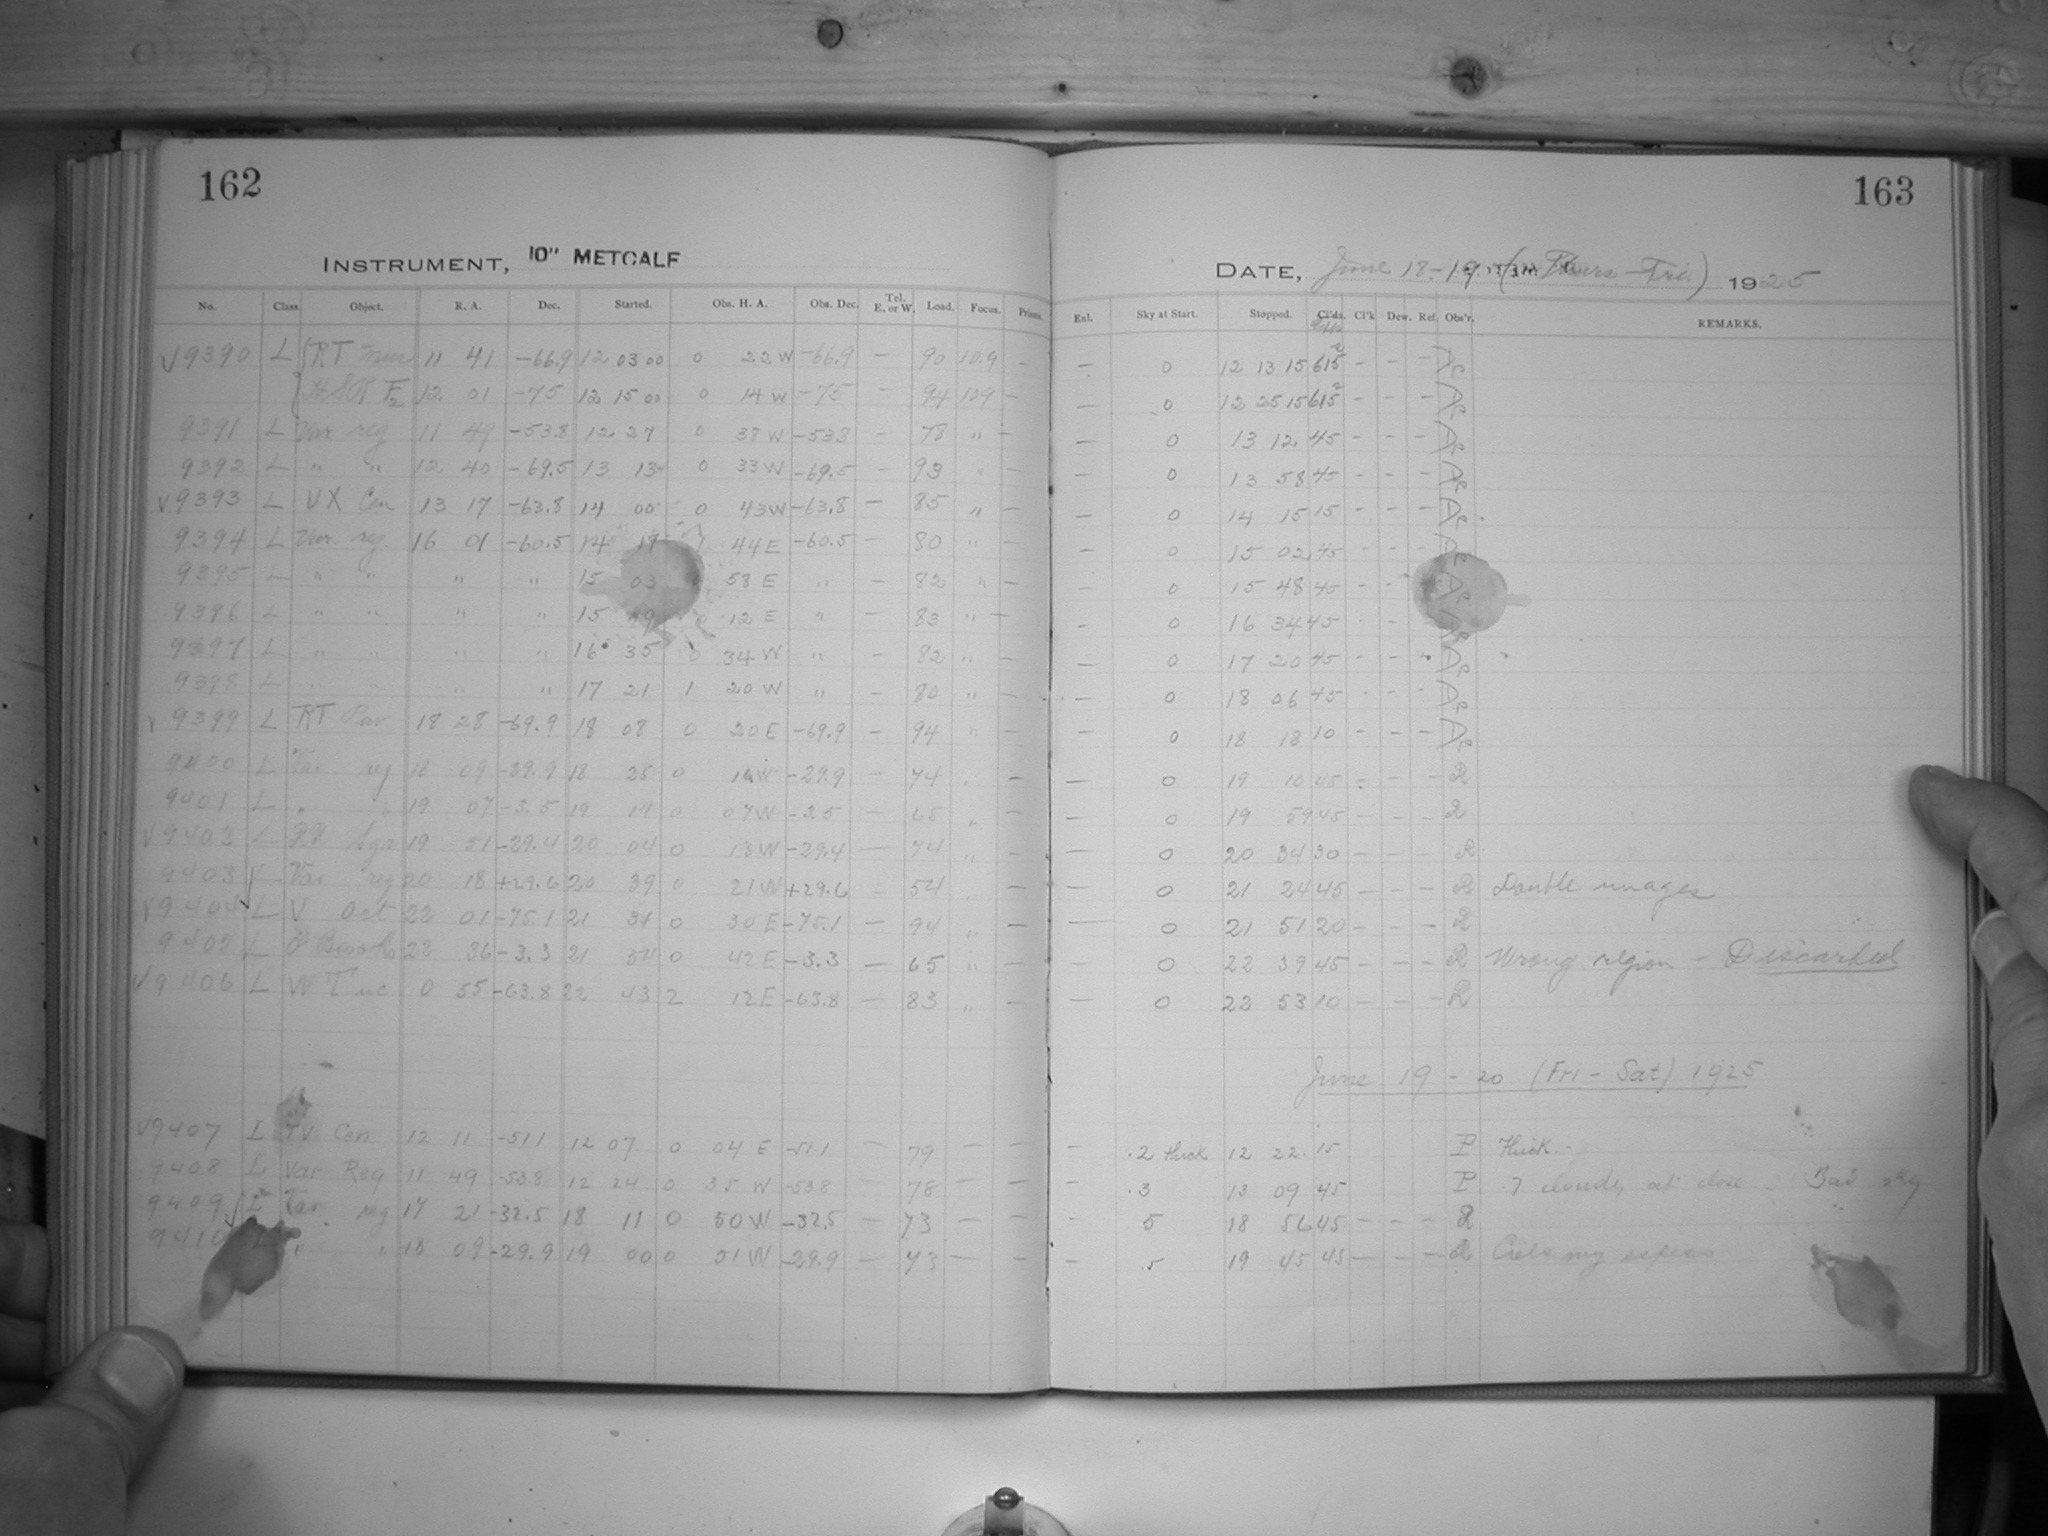 162
163
INSTRUMENT, 10" METCALF
DATE, June 18-19 (Thurs-Fri.) 1925
No. Class. Object. R. A. Dec. Started. Obs. H. A. Obs. Dec. Tel. E. or W. Load. Focus. Prisms. Enl. Sky at Start. Stopped. Cl'ds. Cl'k Dew. Ref. Obs'r. REMARKS.
√9390 L RT Mus 11 41 -66.9 12 03 00 0 22 W -66.9 - 90 10.9 - - 0 12 13 15 - - -
12 01 -75 12 15 00 0 14 W -75 - 94 109 - - 0 12 25 15 - - -
9391 L Var reg 11 49 -53.8 12 27 0 38 W -53.8 - 78 " - - 0 13 12 45 - - -
9392 L " " 12 40 -69.5 13 13 0 33 W -69.5 - 93 " - - 0 13 58 45 - - -
√9393 L UX Cen 13 17 -63.8 14 00 0 43 W -63.8 - 85 " - - 0 14 15 15 - - -
9394 L Var reg. 16 01 -60.5 14 17 1 44 E -60.5 - 80 " - - 0 15 02 45 - - -
9395 L " " " " 15 03 0 58 E " - 82 " - - 0 15 48 45 - - -
9396 L " " " " 15 49 0 12 E " - 83 " - - 0 16 34 45 - - -
9397 L " " " " 16 35 0 34 W " - 82 " - - 0 17 20 45 - - -
9398 L " " " " 17 21 1 20 W " - 80 " - - 0 18 06 45 - - -
√ 9399 L RT Pav 18 28 -69.9 18 08 0 20 E -69.9 - 94 " - - 0 18 18 10 - - -
9400 L Var reg 18 09 -29.9 18 25 0 16 W -29.9 - 74 " - - 0 19 10 45 - - - R
9401 L " " 19 07 -3.5 19 14 0 07 W -3.5 - 65 " - - 0 19 59 45 - - - R
√9402 L RR Sgr 19 51 -29.4 20 04 0 13 W -29.4 - 74 " - - 0 20 34 30 - - - R
9403 L Var reg 20 18 +29.6 20 39 0 21 W +29.6 - 54 " - - 0 21 24 45 - - - R Double images
√9404 L V Oct 22 01 -75.1 21 31 0 30 E -75.1 - 94 " - - 0 21 51 20 - - - R
9405 L Brooks 22 36 -3.3 21 54 0 42 E -3.3 - 65 " - - 0 22 39 45 - - - R Wrong region - Discarded
√9406 L W Tuc 0 55 -63.8 22 43 2 12 E -63.8 - 83 " - - 0 22 53 10 - - - R
June 19 - 20 (Fri - Sat) 1925
√9407 L TV Cen 12 11 -51.1 12 07 0 04 E -51.1 - 79 - - - .2 thick 12 22 15 P Thick -
9408 L Var Reg 11 49 -53.8 12 24 0 35 W -53.8 - 78 - - - .3 13 09 45 P .7 cloudy at close - Bad sky
9409 L Var reg 17 21 -32.5 18 11 0 50 W -32.5 - 73 - - - 5 18 56 45 - - - R
9410 L " " 18 09 -29.9 19 00 0 51 W -29.9 - 73 - - - .5 19 45 45 - - - R